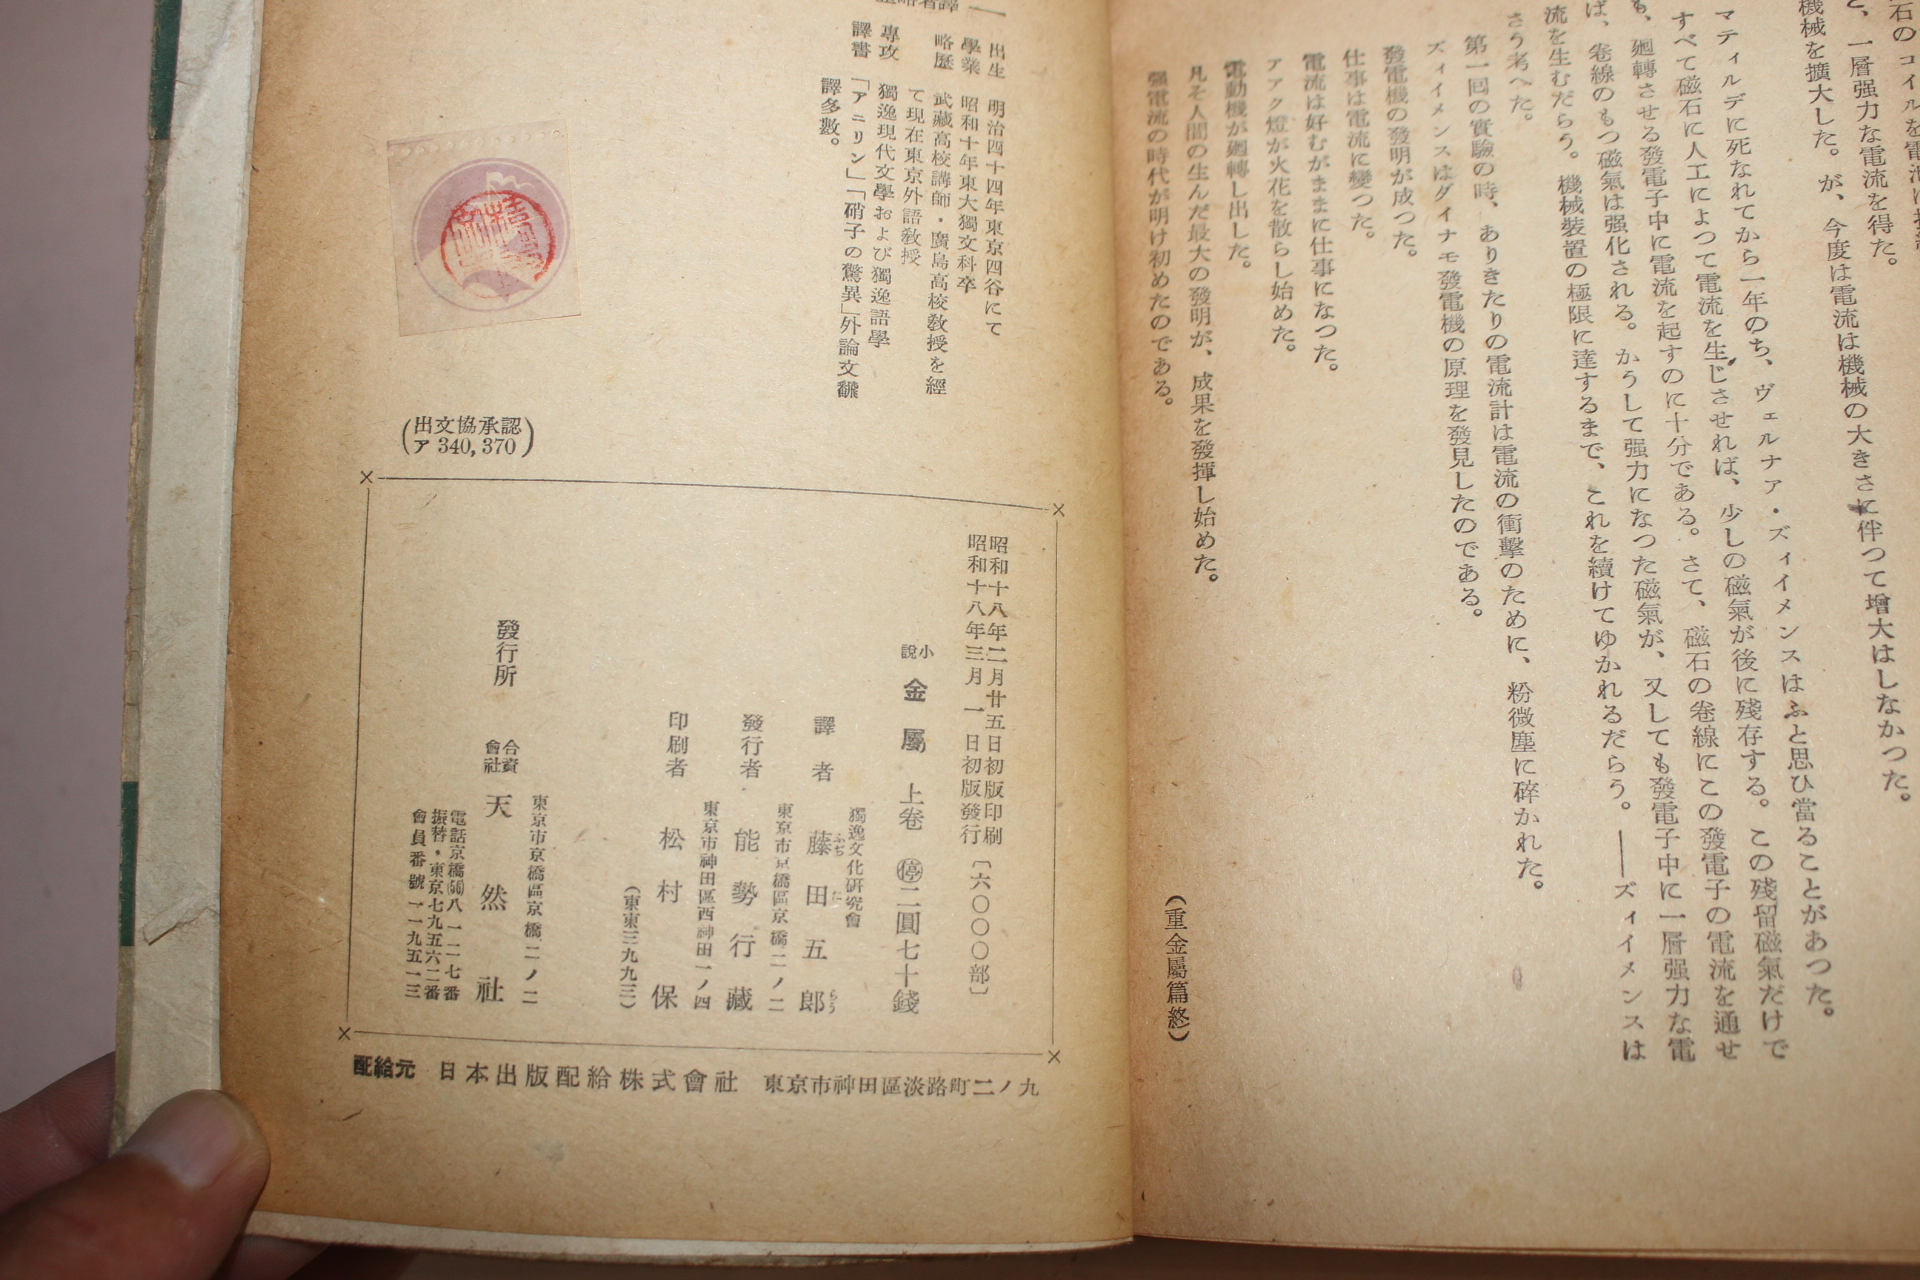 石のコイルを電池に
と、一層强力な電流を得た。
機械を擴大した。が、今度は電流は機械の大きさに伴つて增大はしなかつた。
マティルデに死なれてから一年のち、ヴェルナア・ズィイメンスはふと思ひ當ることがあつた。
すべて磁石に人工によつて電流を生じさせれば、少しの磁氣が後に殘存する。この殘留磁氣だけで
も、廻轉させる發電子中に電流を起すのに十分である。さて、磁石の卷線にこの發電子の電流を通せ
ば、卷線のもつ磁氣は强化される。かうして强力になつた磁氣が、又しても發電子中に一層强力な電
流を生むだらう。機械裝置の極限に達するまで、これを續けてゆかれるだらう。――ズィイメンスは
さう考へた。
第一回の實驗の時、ありきたりの電流計は電流の衝擊のために、粉微塵に碎かれた。
ズィイメンスはダイナモ發電機の原理を發見したのである。
發電機の發明が成つた。
仕事は電流に變つた。
電流は好むがままに仕事になつた。
アアク燈が火花を散らし始めた。
電動機が廻轉し出した。
凡そ人間の生んだ最大の發明が、成果を發揮し始めた。
强電流の時代が明け初めたのである。
(重金屬篇終)
譯者略
出生 明治四十四年東京四谷にて
學業 昭和十年東大獨文科卒
略歷 武藏高校講師・廣島高校敎授を經
て現在東京外語敎授
專攻 獨逸現代文學および獨逸語學
譯書 「アニリン」「硝子の驚異」外論文飜
譯多數。
(出文協承認
ア 340,370)
昭和十八年二月廿五日初版印刷
昭和十八年三月一日初版發行〔六〇〇〇部〕
小說 金屬 上卷 ㊡二圓七十錢
獨逸文化硏究會
譯者 藤田五郞
東京市京橋區京橋二ノ二
發行者 能勢行藏
東京市神田區西神田一ノ四
印刷者 松村保
(東東三九九三)
東京市京橋區京橋二ノ二
發行所 合資會社 天然社
電話京橋(56)八一一七番
振替・東京七九五六二番
會員番號一一九五一三
配給元 日本出版配給株式會社 東京市神田區淡路町二ノ九